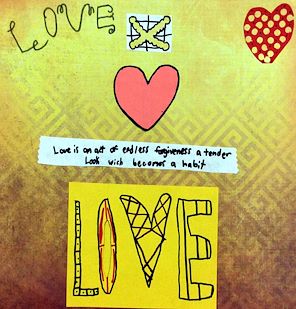 LOVE
Love is an act of endless forgiveness a tender
Look wich becomes a habit
LOVE